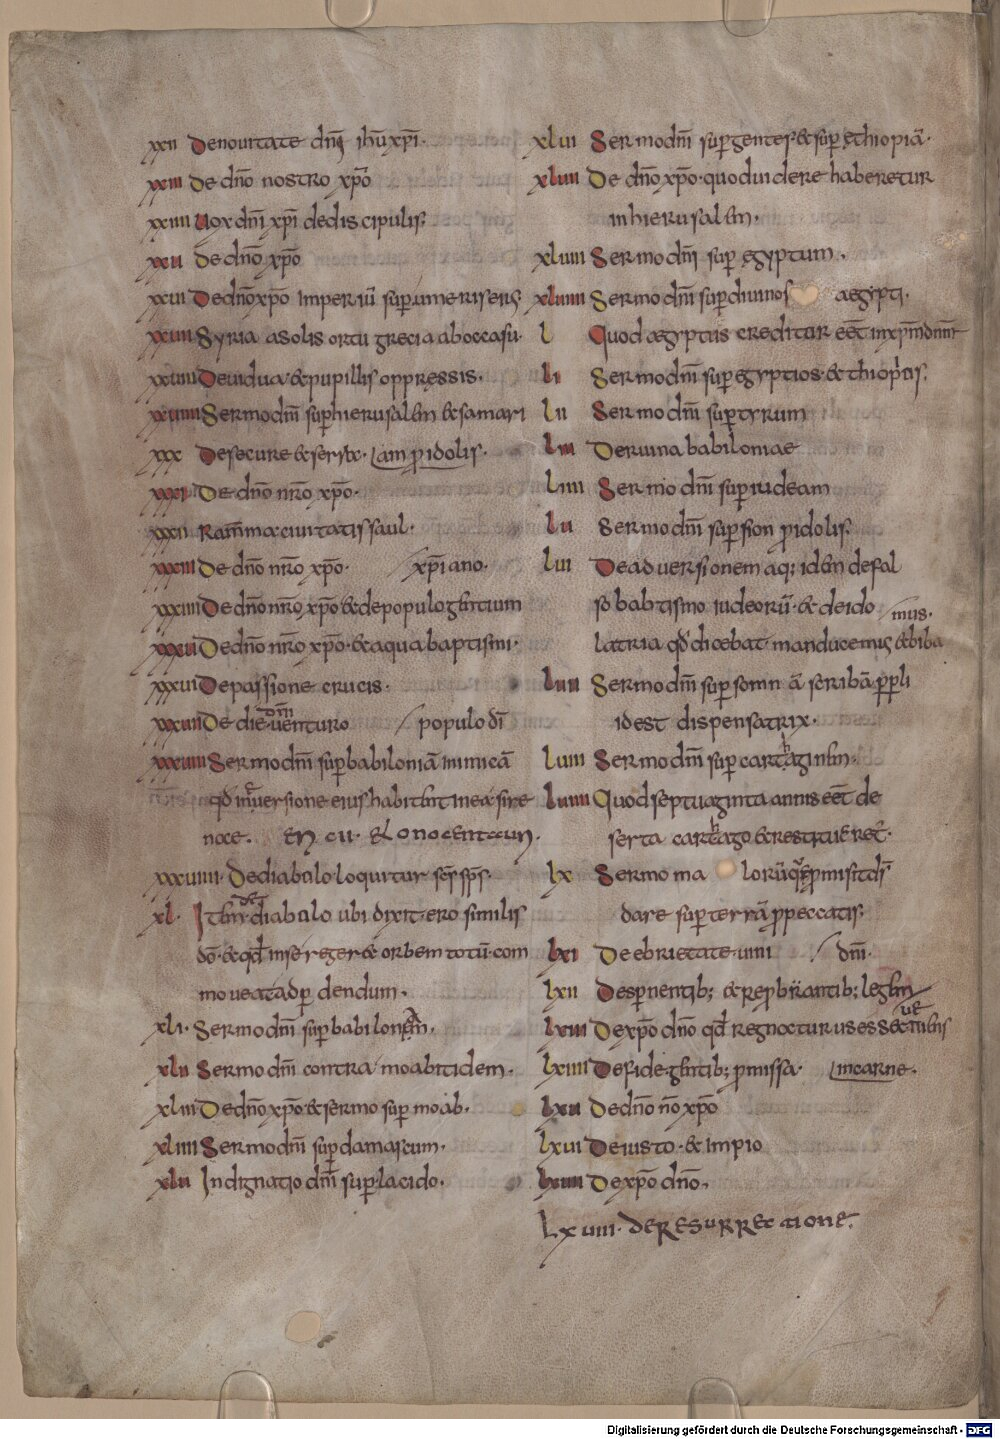 xxii Denouitate dn̄i ihū xp̄i·
xxiii De dn̄o nostro xp̄o
xxiiii Uox dn̄i xp̄i dediscipulis·
xxu De dn̄o xp̄o
xxui De dn̄o xp̄o imperiū sup umeris eius
xxuii Syria asolis ortu grecia aboccasu·
xxuiii Deuidua· &pupillis oppressis·
xxuiiii Sermodn̄i suphierusalem &samari
xxx Desecure &serr&e· am p idolis·
xxxi De dn̄o nr̄o xp̄o·
xxxii Ramma ciuitatis saul·
xxxiii De dn̄o nr̄o xp̄o· /xp̄iano·
xxxiiii De dn̄o nr̄o xp̄o &depopulo gentium
xxxu De dn̄o nr̄o xp̄o· &aqua baptismi·
xxxui Depassione crucis·
xxxuii De die dn̄i uenturo /populo dī
xxxuiii Sermodn̄i supbabiloniā inimicā
qd inuersione eius habitent inea sire
nace· en cu· & onocentaur·
xxxuiiii· Dediabulo loquitur sc̄s sp̄s·
xl· Item de diabulo ubi dixit· ero similis
dō· &qd inse reges & orbem totū· com
moueat adp dendum·
xli· Sermodn̄i supbabilonem·
xlii Sermodn̄i contra moabitidem·
xliii De dn̄o xp̄o &sermo sup moab·
xliiii Sermodn̄i supdamascum·
xlu Indignatio dn̄i sup lacido·
xlui Sermodn̄i supgentes· &sup ethiopiā·
xluii De dn̄o xp̄o· quoduidere haberetur
inhierusalem·
xluiii Sermodn̄i sup egyptum·
xluiiii Sermodn̄i supdiuinos aegypti·
l Quod aegyptus creditur eēt inxp̄m dn̄m
li Sermodn̄i sup egyptios· &thiopas·
lii Sermodn̄i suptyrum
liii Deruina babiloniae
liiii Sermodn̄i sup iudeam
lu Sermodn̄i supsion p idolis·
lui Deaduersionem aq; idem defal
so babtismo iudeorū· & deido /mus·
latria qd dicebat manducemus &biba
luii Sermodn̄i supsomnā scribā ppli
idest dispensatrix·
luiii Sermodn̄i sup cartaginem·
luiiii Quodseptuaginta annis eēt de
serta cartago &restitueret·
lx Sermo malorū quē p misit dn̄s
dare supterrā p peccatis·
lxi Deebrietate uini /dn̄i·
lxii Despernentib; & reprobantib; legem
lxiii Dexp̄o dn̄o qd regnaturus esset ueniens
lxiiii Defide gentib; p missa· incarne·
lxu De dn̄o n̄o xp̄o
lxui Deiusto· & impio
lxuii Dexp̄o dn̄o·
lxuiii· deresurrectione·
Digitalisierung gefördert durch die Deutsche Forschungsgemeinschaft - DFG